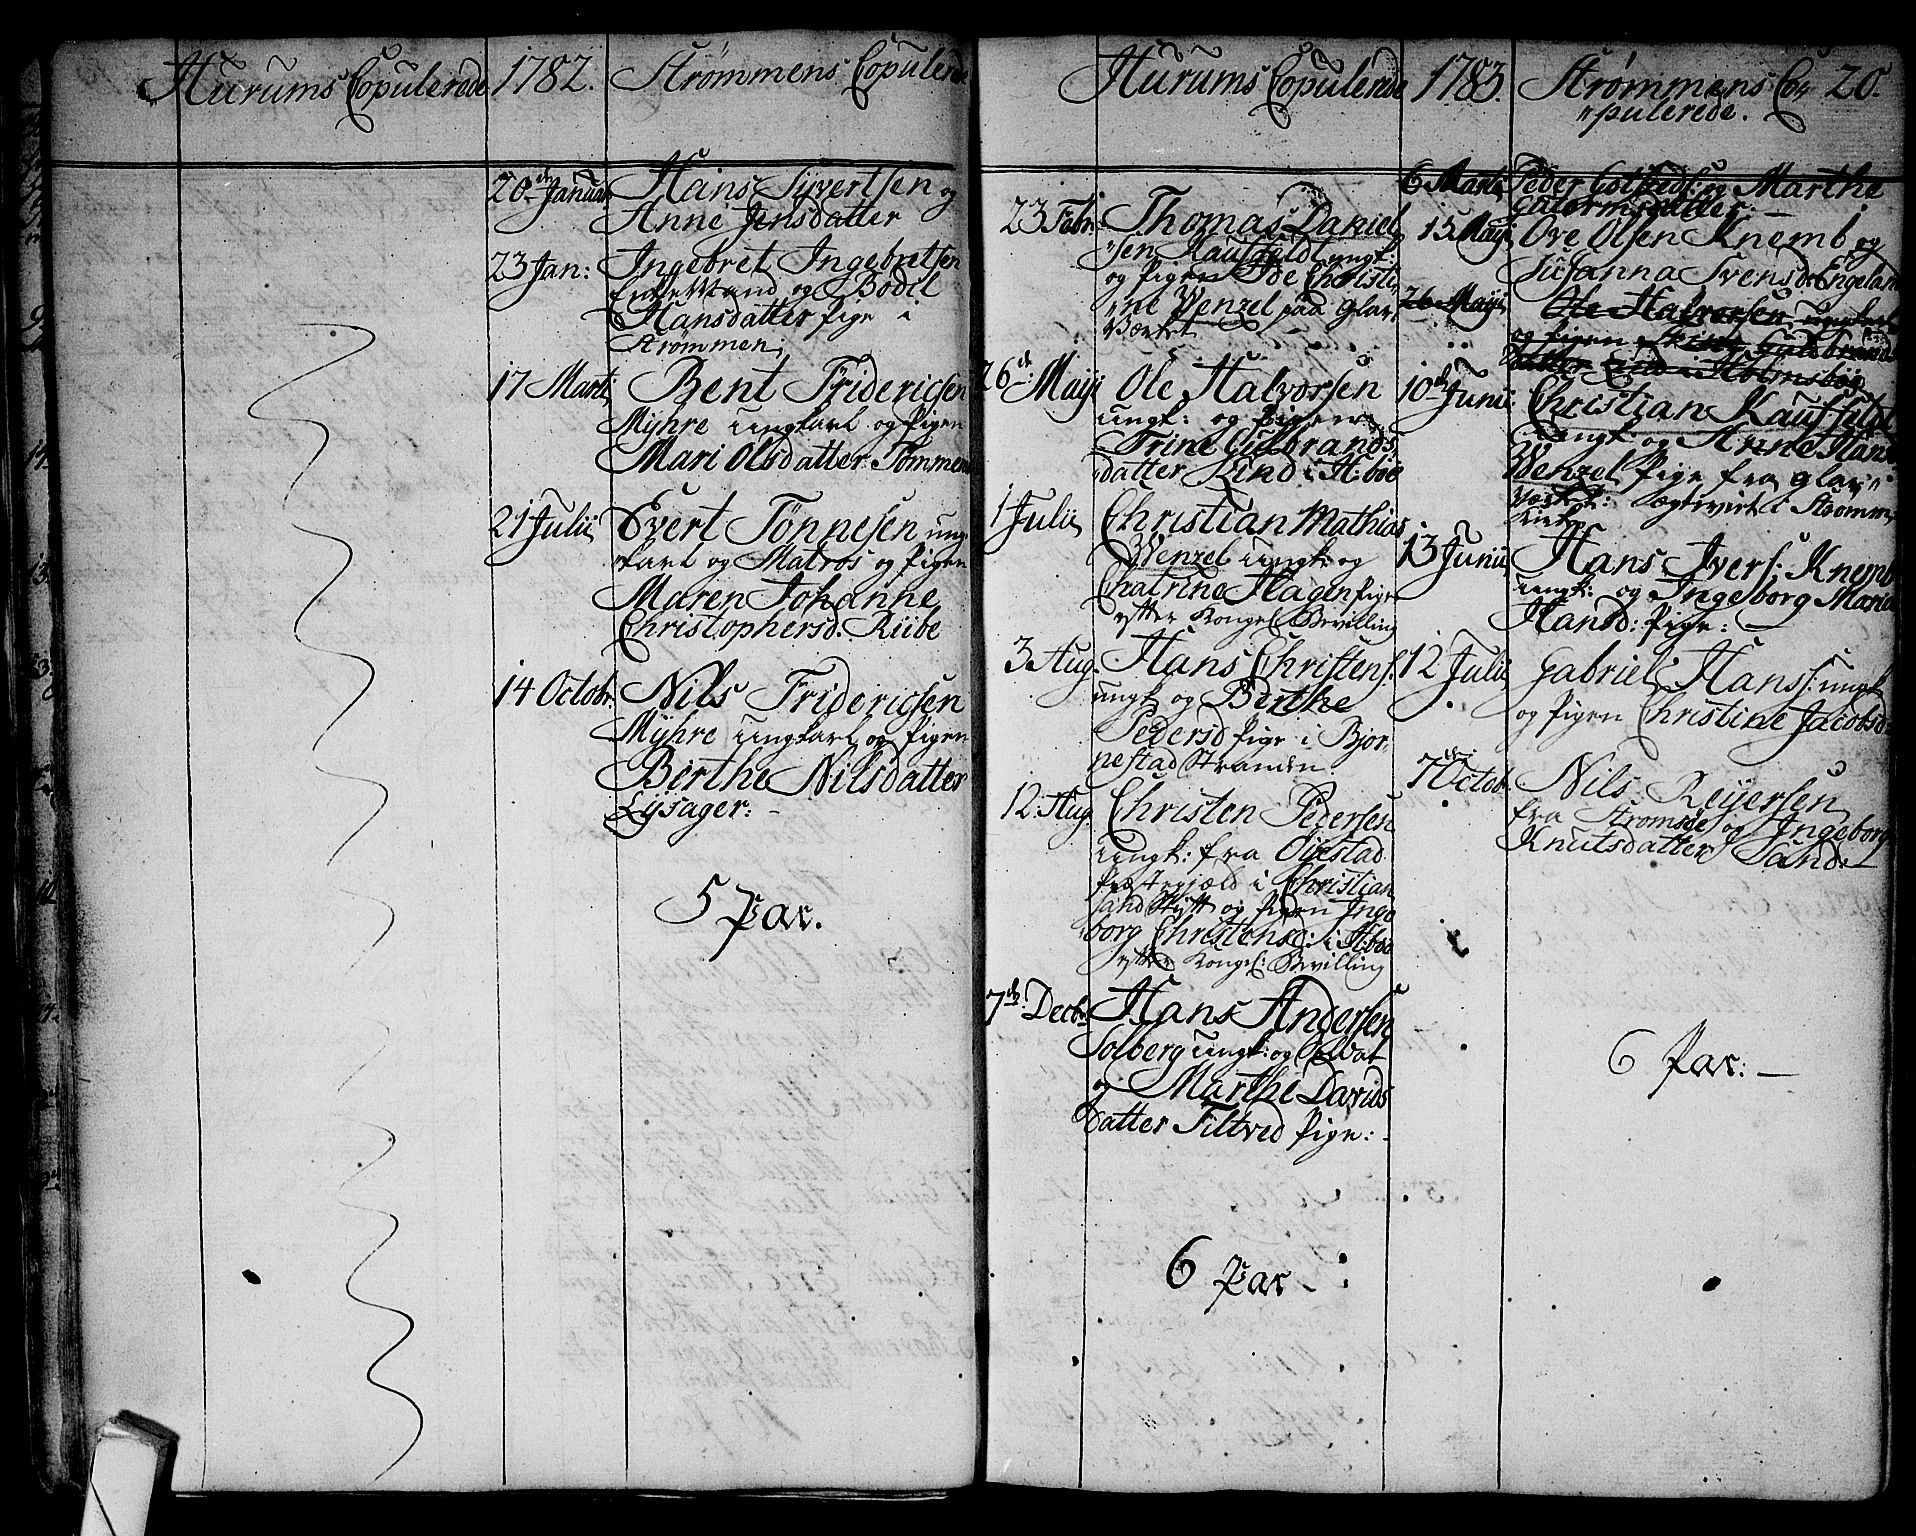 Hurums Copulerede
1782.
Strømmens Copulerede
20de Januar
Hans Syvertsen og
Anne Jensdatter
23 Jan:
Ingebret Ingebretsen
Enke Mand og Bodil
Hansdatter Pige i
Strømmen;
17 Marti
Bent Friderichsen
Myhre ungkarl og Pigen
Mari Olsdatter Tømmen
21 Julii
Evert Tønnesen ung
karl og Matros og Pigen
Maren Johanne
Christophersd. Riibe
14 Octobr.
Nils Fridericsen
Myhre ungkarl og Pigen
Berthe Nilsdatter
Lysager:
5 Par.
Hurums Copulerede
1783.
Strømmens Co„
„pulerede.
20.
23 Febr:
Thomas Daniel
„sen Kaufeldt ungk:
og Pigen Ide Christi
„ne Wenzel paa Glas
Værket
26de Maji
Ole Halvorsen
ungk: og Pigen
Trine Gulbrands
datter Lind i H:boe
1 Julii
Christian Mathias
Wenzel ungk: og
Chatrine Hagen Pige
efter Kongel Bevilling
3 Aug.
Hans Christens:
ungk og Berthe
Pedersd Pige i Bjør
nestad Stranden.
12. Aug.
Christen Pedersen
ungk: fra Øijestad
Præstegjæld i Christian
sand Stift og Pigen Inge
borg Christensd: i H:boe
efter Kongel: Bevilling
7de Decbr
Hans Andersen
Solberg ungk: og Solbat
og Marthe Davids
Datter Tiltved Pige:
6 Par
6 Marti
Peder og Marthe
15 Maji
Ove Olsen Knemb og
Susanna Svensd: Engeland
26 Maji
Ole Halvorsen ungkarl
og Pigen Gulbrands
datter Lind i Holmsboe
10de Junii
Christian Kauffeldt
ungk: og Anne Hans
Wenzel Pige fra Glas
Værket: Ægteviet i Strømm
Kirk
13 Junii
Hans Ivers: Knemb
ungk: og Ingeborg Maria
Hansd: Pige:
12 Julii
Gabriel Hans: ungk
og Pigen Christine Jacobsd:
7de Octob.
Nils Reijersen
fra Strømsøe og Ingeborg
Knutsdatter Sand:
6 Par: